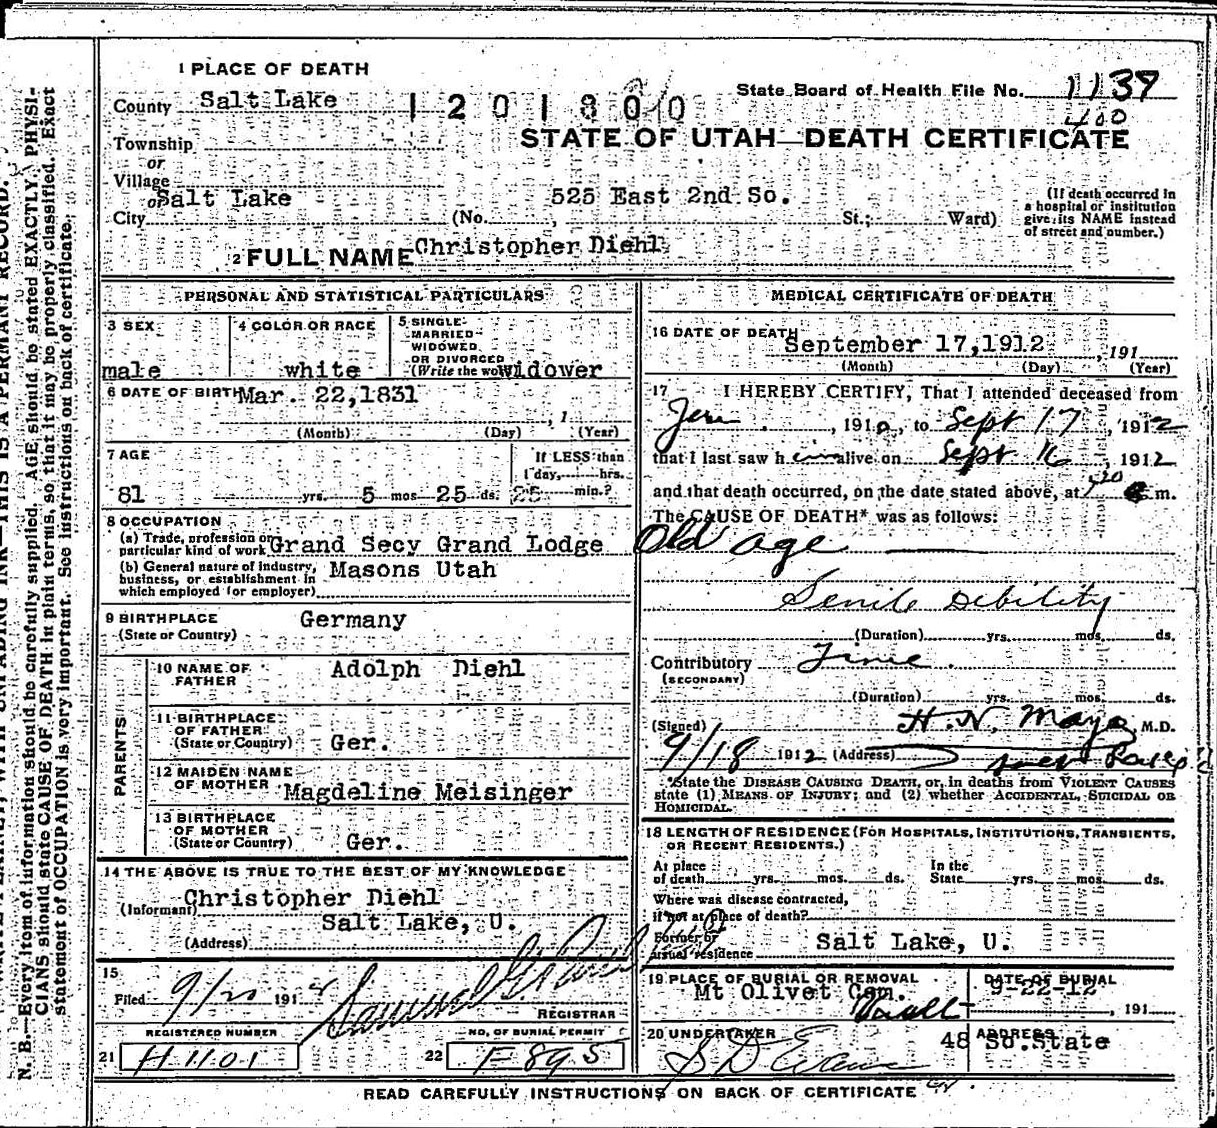 1 PLACE OF DEATH
County Salt Lake
1201800
State Board of Health File No. 1139
400
STATE OF UTAH—DEATH CERTIFICATE
Township
or
Village
or
City Salt Lake (No. 525 East 2nd So. St.; Ward)
(If death occurred in
a hospital or institution
give its NAME instead
of street and number.)
2 FULL NAME Christopher Diehl
PERSONAL AND STATISTICAL PARTICULARS
3 SEX
male
4 COLOR OR RACE
white
5 SINGLE
MARRIED
WIDOWED
OR DIVORCED
(Write the word) widower
6 DATE OF BIRTH Mar. 22,1831
, 1
(Month) (Day) (Year)
7 AGE
81 yrs. 5 mos 25 ds.
If LESS than
1 day, hrs.
min.?
8 OCCUPATION
(a) Trade, profession or
particular kind of work Grand Secy Grand Lodge
(b) General nature of industry,
business, or establishment in
which employed (or employer) Masons Utah
9 BIRTHPLACE
(State or Country) Germany
PARENTS
10 NAME OF
FATHER Adolph Diehl
11 BIRTHPLACE
OF FATHER
(State or Country) Ger.
12 MAIDEN NAME
OF MOTHER Magdeline Meisinger
13 BIRTHPLACE
OF MOTHER
(State or Country) Ger.
14 THE ABOVE IS TRUE TO THE BEST OF MY KNOWLEDGE
(Informant) Christopher Diehl
(Address) Salt Lake, U.
15
Filed 9/20 191
REGISTRAR
REGISTERED NUMBER
21 H 1101
NO. OF BURIAL PERMIT
22 F 895
MEDICAL CERTIFICATE OF DEATH
16 DATE OF DEATH September 17,1912 , 191
(Month) (Day) (Year)
17 I HEREBY CERTIFY, That I attended deceased from
, 1910, to Sept 17, 1912
that I last saw him alive on Sept 16, 1912
and that death occurred, on the date stated above, at m.
The CAUSE OF DEATH* was as follows:
Old age
Senile Debility
(Duration) yrs. mos. ds.
Contributory Time.
(SECONDARY)
(Duration) yrs. mos. ds.
(Signed) H. N. Mayo, M.D.
9/18 1912 (Address)
*State the DISEASE CAUSING DEATH, or, in deaths from VIOLENT CAUSES
state (1) MEANS OF INJURY; and (2) whether ACCIDENTAL, SUICIDAL OR
HOMICIDAL.
18 LENGTH OF RESIDENCE (FOR HOSPITALS, INSTITUTIONS, TRANSIENTS,
OR RECENT RESIDENTS.)
At place
of death yrs. mos. ds.
In the
State yrs. mos. ds.
Where was disease contracted,
if not at place of death?
Former or
usual residence Salt Lake, U.
19 PLACE OF BURIAL OR REMOVAL
Mt Olivet Cem.
Vault
DATE OF BURIAL
9-22-12
, 191
20 UNDERTAKER
S D Evans
ADDRESS
48 So.State
READ CAREFULLY INSTRUCTIONS ON BACK OF CERTIFICATE
N. B.—Every item of information should be carefully supplied. AGE should be stated EXACTLY. PHYSI-
CIANS should state CAUSE OF DEATH in plain terms, so that it may be properly classified. Exact
statement of OCCUPATION is very important. See instructions on back of certificate.